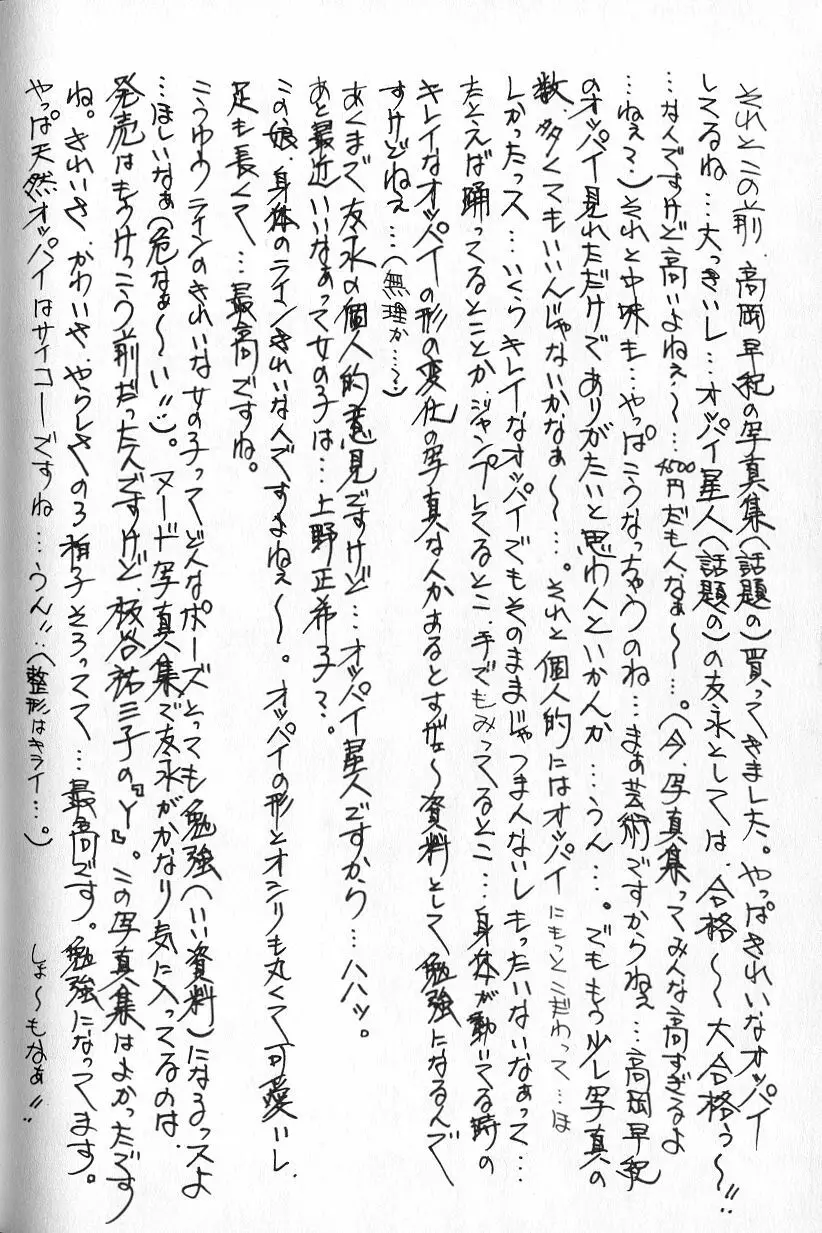 それとこの前、高岡早紀の写真集(話題の)買ってきました。やっぱきれいなオッパイ
してるね…大っきいし…オッパイ星人(話題の)の友永としては、合格〜大合格ぅ〜!!
…なんですけど高いよねぇ〜…4500円だもんなぁ〜…。(今、写真集ってみんな高すぎるよ
…ねぇ？)それと中味も…やっぱこうなっちゃうのね…まぁ芸術ですからねぇ…高岡早紀
のオッパイ見れただけでありがたいと思わんといかんか…うん…。でももう少し写真の
数、多くてもいいんじゃないかなぁ〜…。それと個人的にはオッパイにもっとこだわって…ほ
しかったっス…いくらキレイなオッパイでもそのままじゃつまんないしもったいないなぁって…
たとえば踊ってるとことかジャンプしてるとこ、手でもみってるとこ…身体が動いてる時の
キレイなオッパイの形の変化の写真なんかあるとすげェ〜資料として勉強になるんで
すけどねぇ…(無理か…？)
あくまで友永の個人的意見ですけど…オッパイ星人ですから…ハハッ。
あと最近いいなぁって女の子は…上野正希子？。
この娘、身体のラインきれいな人ですよねぇ〜。オッパイの形とオシリも丸くて可愛いし、
足も長くて…最高ですね。
こうゆうラインのきれいな女の子って、どんなポーズとっても勉強(いい資料)になるっスよ
…ほしいなぁ(危なぁ〜い!!)。ヌード写真集で友永がかなり気に入ってるのは、
発売はもうけっこう前だったんですけど、板谷祐三子の『Y』。この写真集はよかったです
ね。きれいさ、かわいさ、やらしさの3拍子そろってて…最高です。勉強になってます。
やっぱ天然オッパイはサイコーですね…うん!!(整形はキライ…。)
しょ〜もなぁ!!